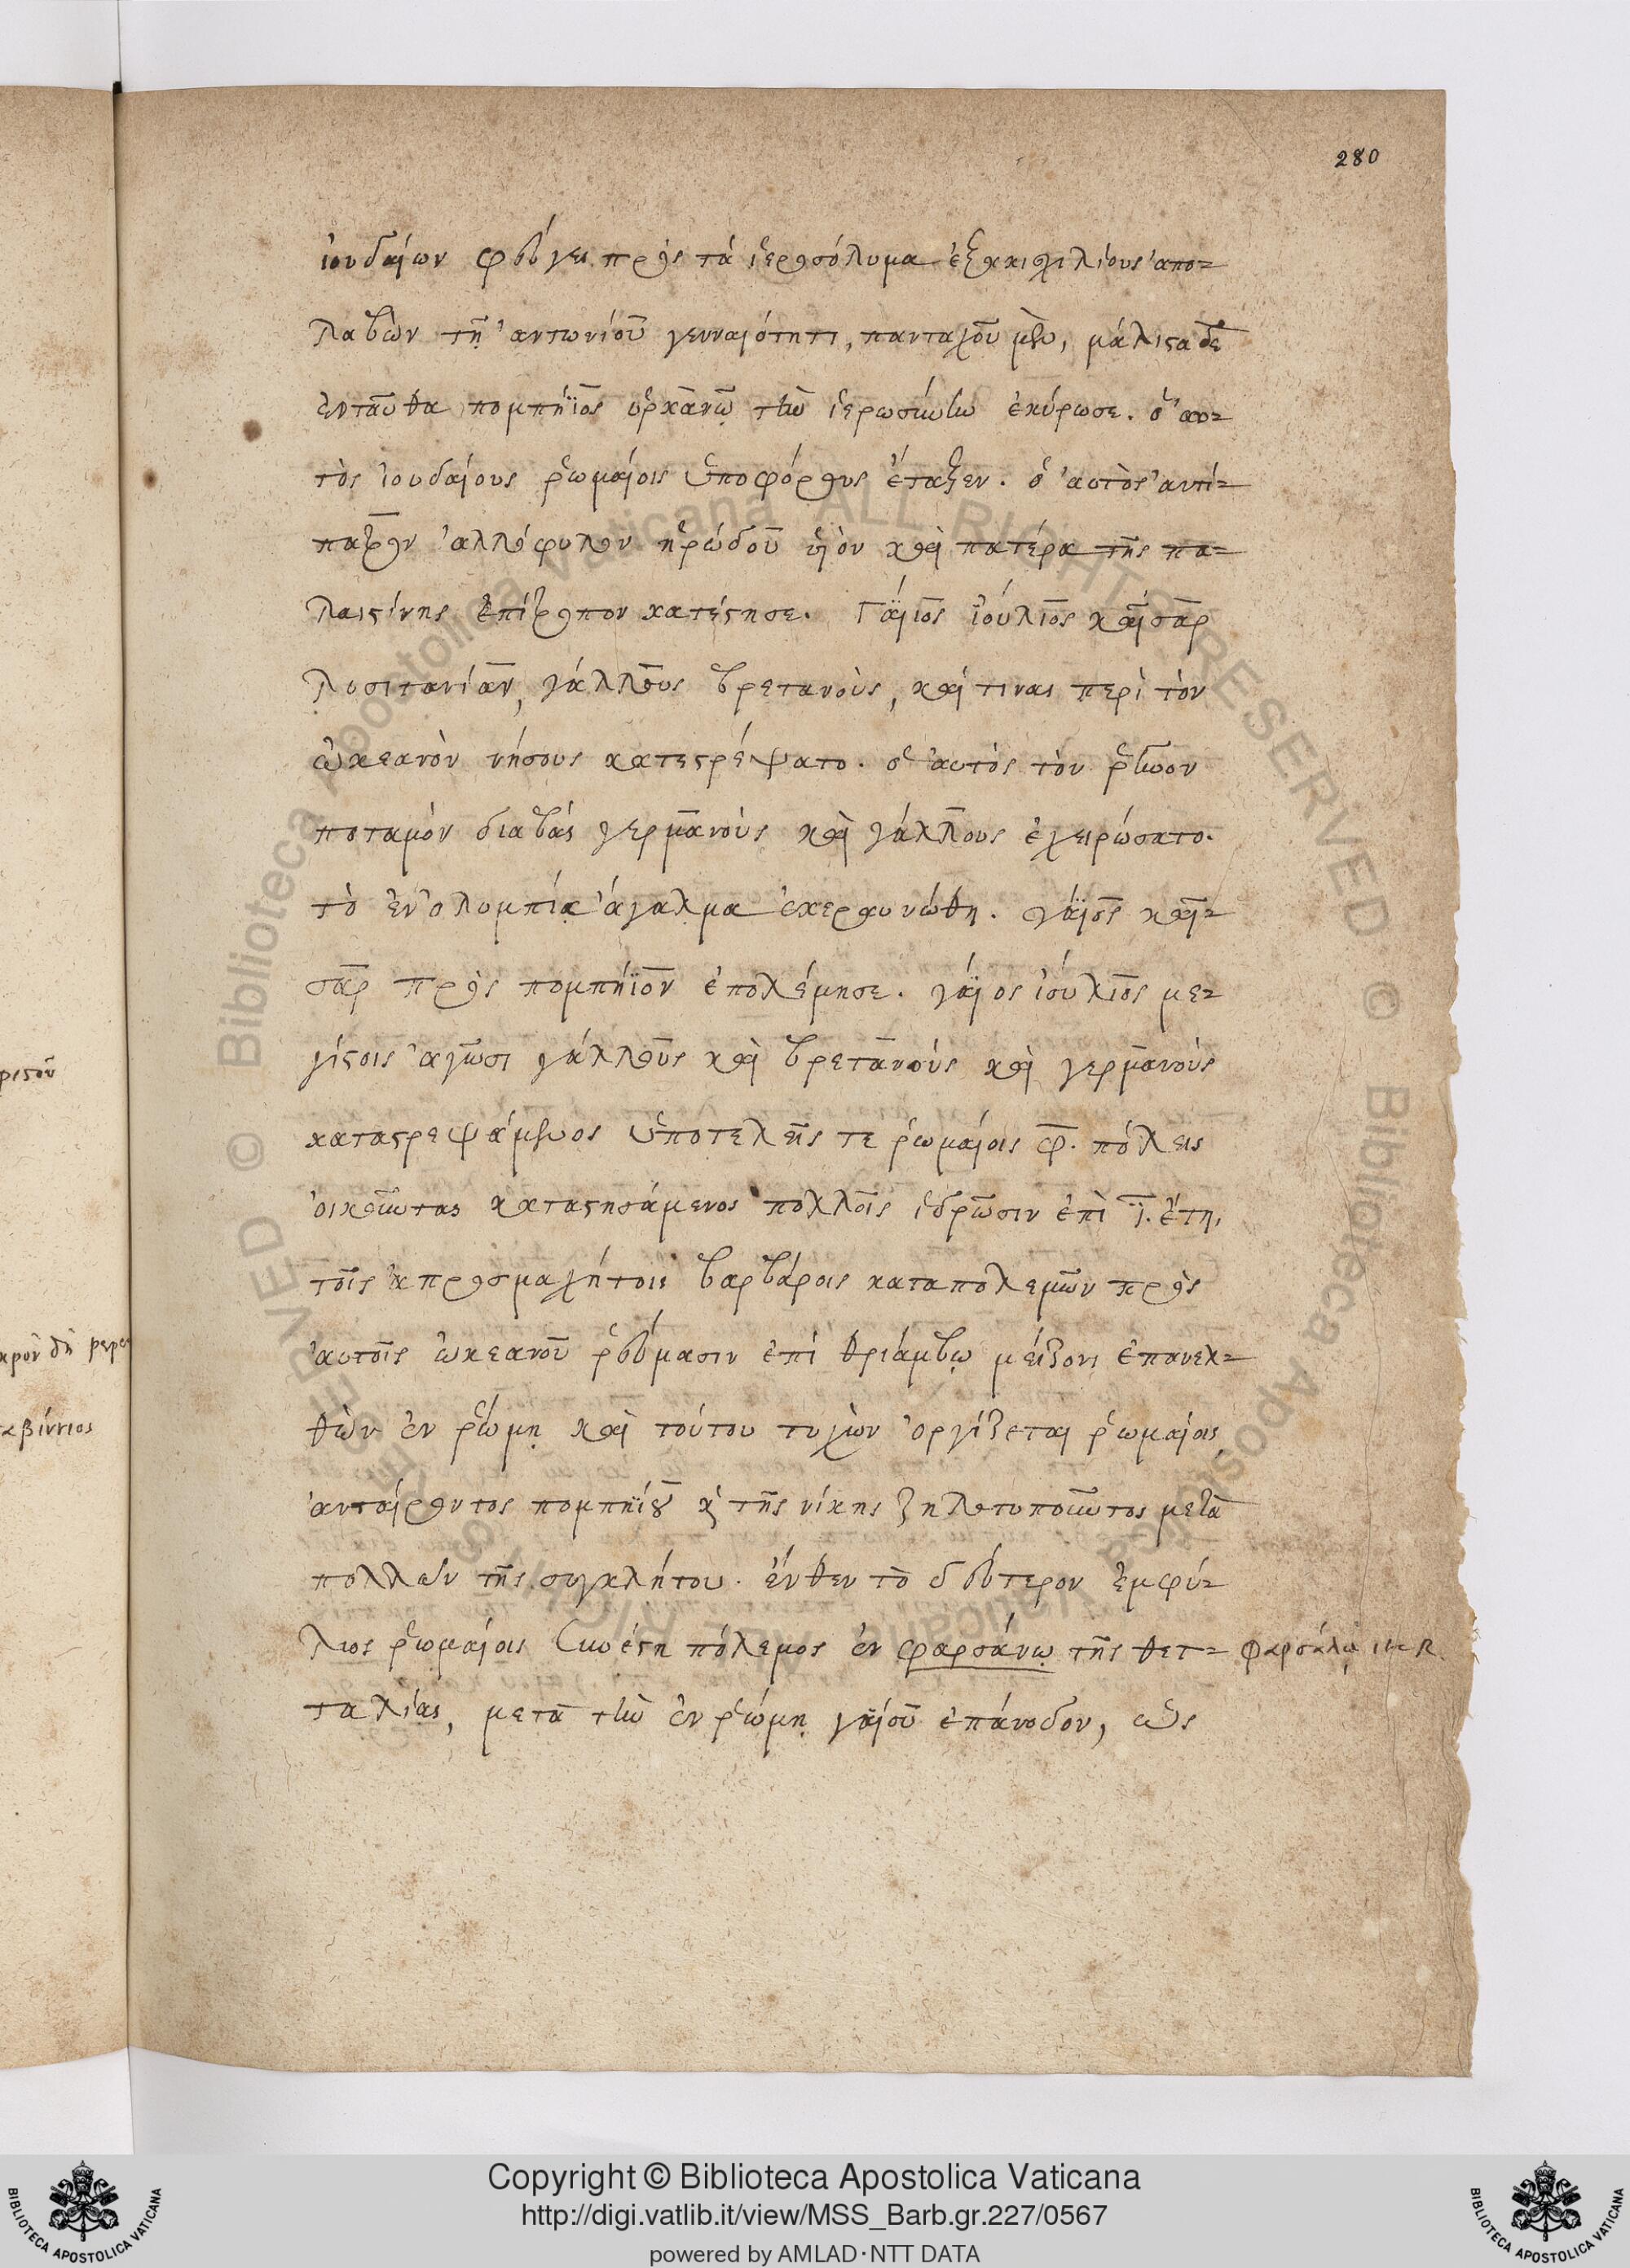 280
ἰουδαίων φεύγει πρὸς τὰ ἱεροσόλυμα ἑξακισχιλίους ἀπο-
λαβὼν τῇ ἀντωνίου γενναιότητι, πανταχοῦ μὲν, μάλιστα δὲ
ἐνταῦθα πομπήϊος ὑρκανῷ τὴν ἱερωσύνην ἐκύρωσε. ὁ αὐ-
τὸς ἰουδαίους ῥωμαίοις ὑποφόρους ἔταξεν. ὁ αὐτὸς ἀντί-
πατρον ἀλλόφυλον ἡρώδου υἱὸν καὶ πατέρα τῆς πα-
λαιστίνης ἐπίτροπον κατέστησε. Γάϊος ἰούλιος καῖσαρ
λυσιτανίαν, γάλλους βρετανοὺς, καί τινας περὶ τὸν
ὠκεανὸν νήσους κατεστρέψατο. ὁ αὐτὸς τὸν ῥῆνον
ποταμὸν διαβὰς γερμανοὺς καὶ γάλλους ἐχειρώσατο.
τὸ ἐν ὀλυμπίᾳ ἄγαλμα ἐκεραυνώθη. γάϊος καῖ-
σαρ πρὸς πομπήϊον ἐπολέμησε. γάϊος ἰούλιος με-
γίστοις ἀγῶσι γάλλους καὶ βρετανοὺς καὶ γερμανοὺς
καταστρεψάμενος ὑποτελεῖς τε ῥωμαίοις φ. πόλεις
οἰκοῦντας καταστησάμενος πολλοῖς ἱδρῶσιν ἐπὶ ι. ἔτη,
τοῖς ἀπροσμαχήτοις βαρβάροις καταπολεμῶν πρὸς
αὐτοῖς ὠκεανοῦ ῥεύμασιν ἐπὶ θριάμβῳ μείζονι ἐπανελ-
θὼν ἐν ῥώμῃ καὶ τούτου τυχὼν ὀργίζεται ῥωμαίοις
ἀνταίροντος πομπηΐου κὶ τῆς νίκης ζηλοτυποῦντος μετὰ
πολλῶν τῆς συγκλήτου. ἔνθεν τὸ δεύτερον ἐμφύ-
λιος ῥωμαίοις συνέστη πόλεμος ἐν φαρσάνῳ τῆς θετ-
φαρσάλῳ
ταλίας, μετὰ τὴν ἐν ῥώμῃ γαΐου ἐπάνοδον, ὡς
Copyright © Biblioteca Apostolica Vaticana
http://digi.vatlib.it/view/MSS_Barb.gr.227/0567
powered by AMLAD·NTT DATA
BIBLIOTECA APOSTOLICA VATICANA
BIBLIOTECA APOSTOLICA VATICANA